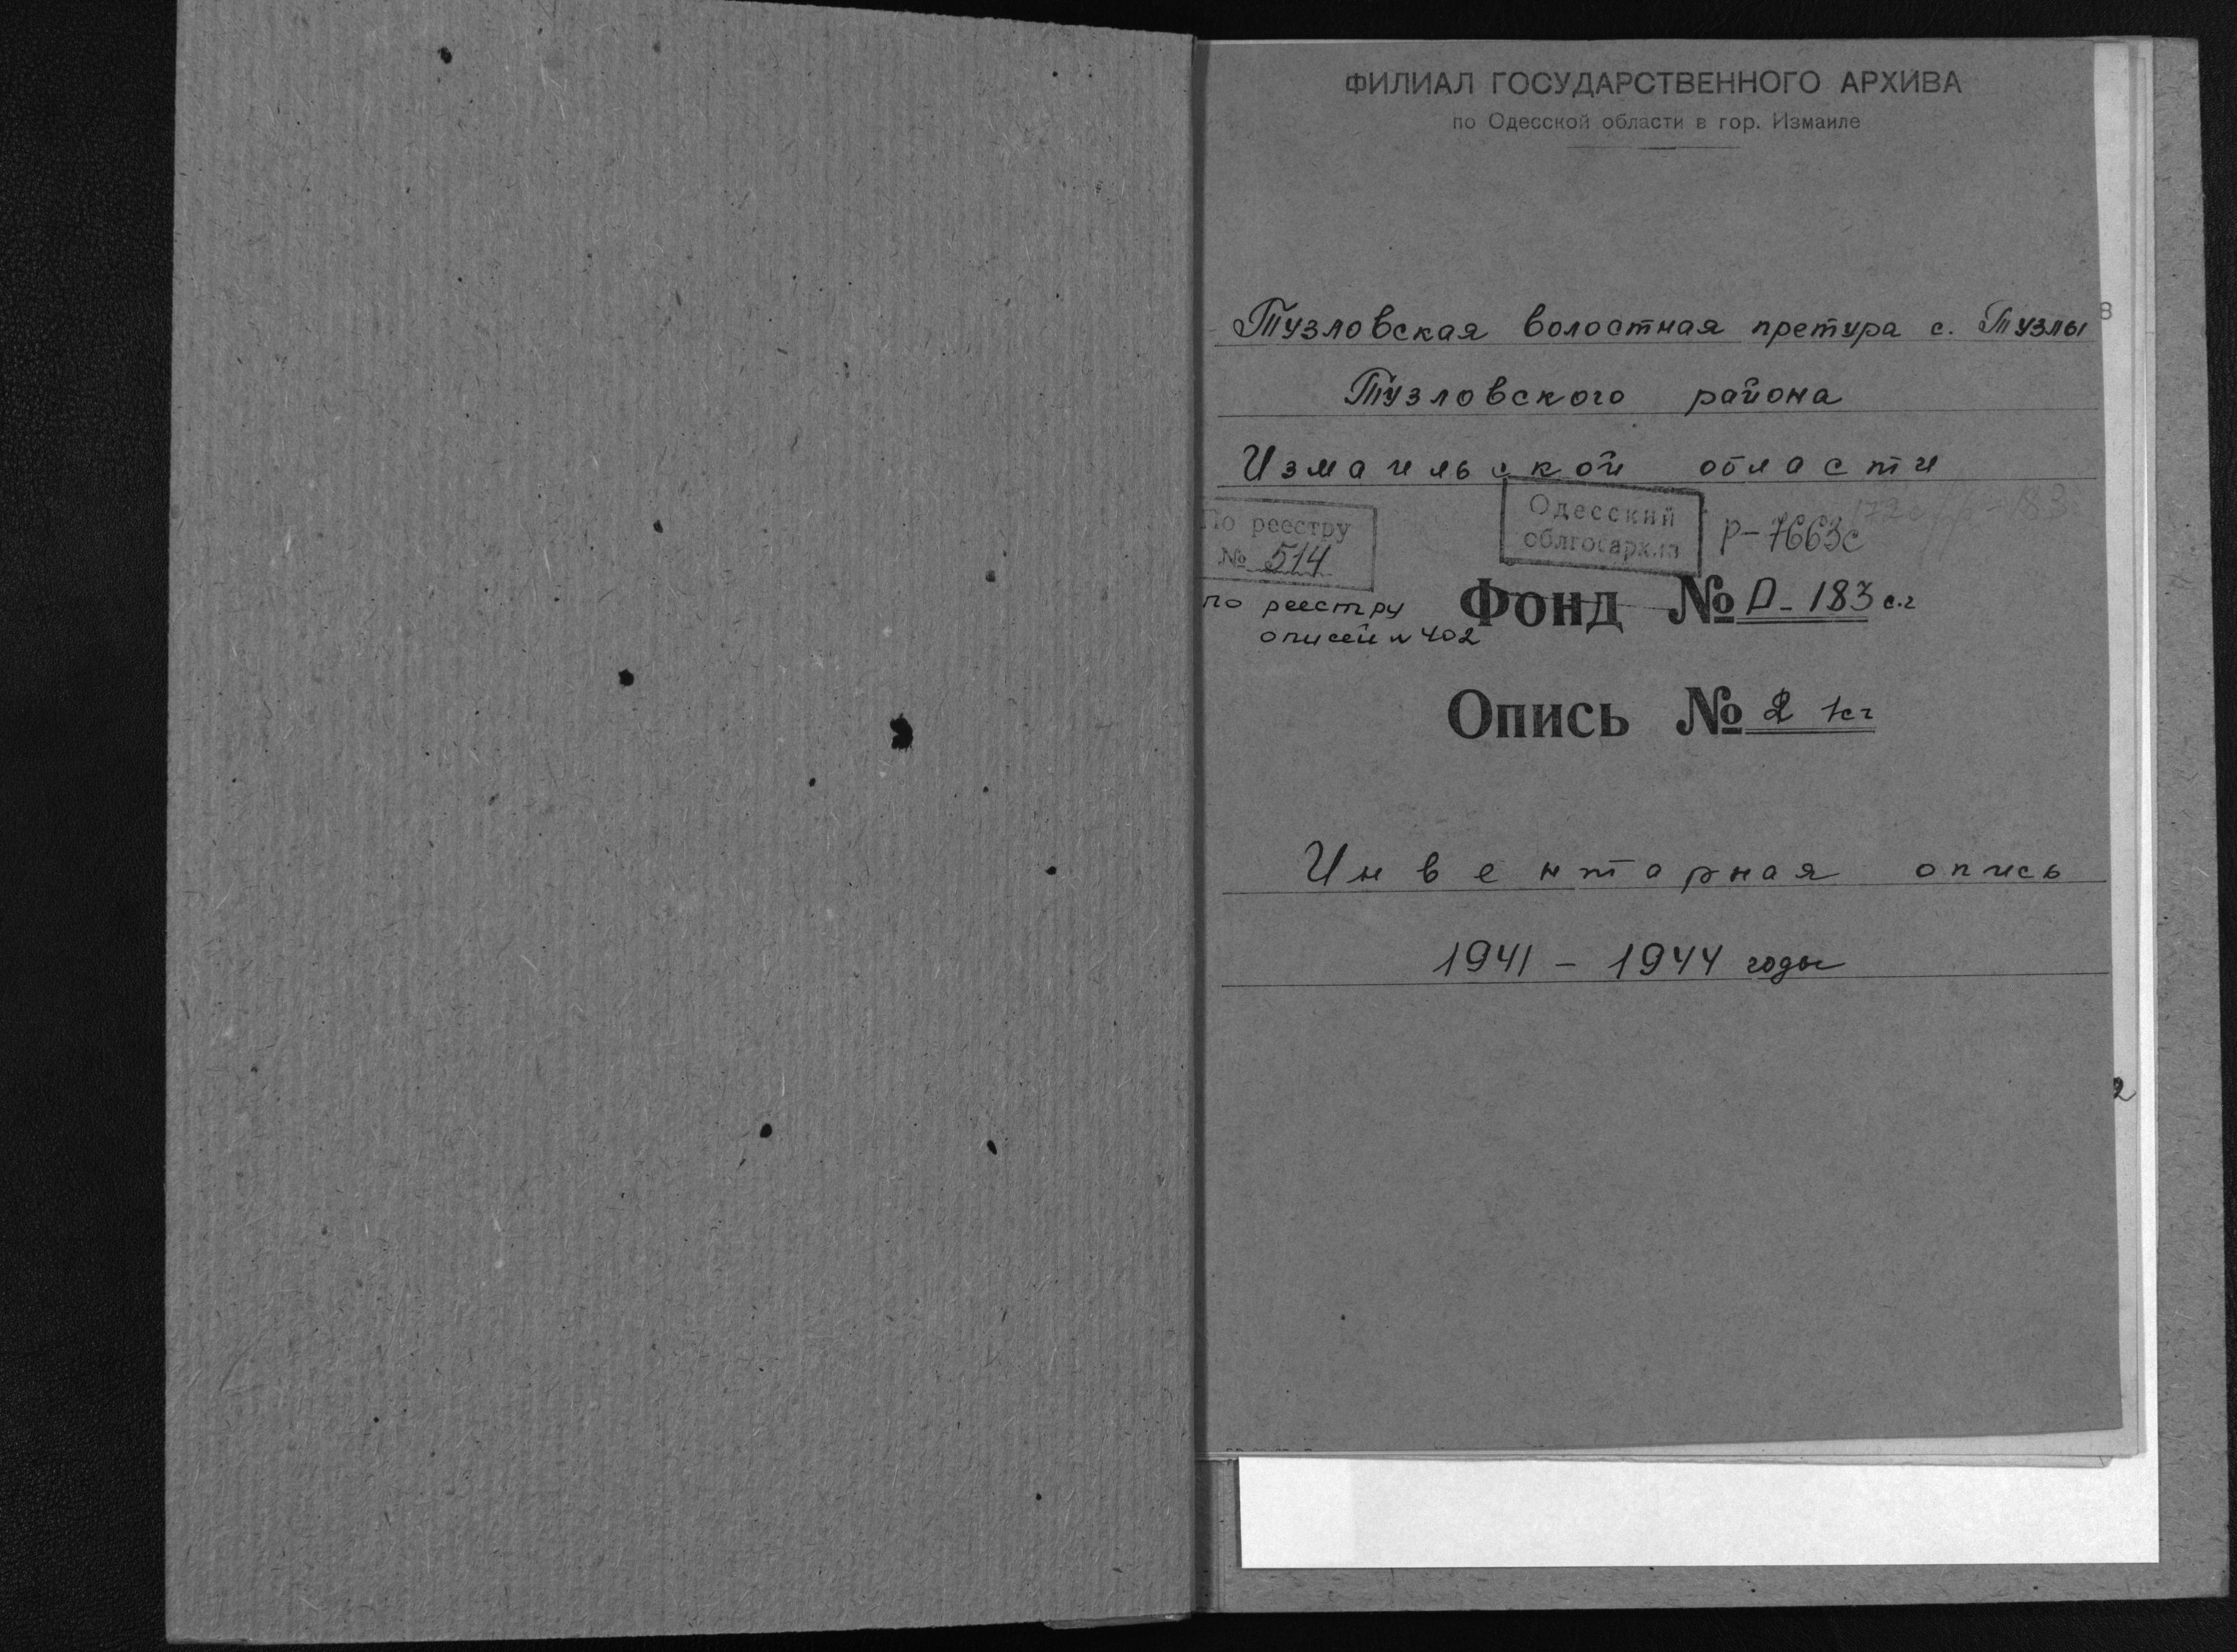 ФИЛИАЛ ГОСУДАРСТВЕННОГО АРХИВА
по Одесской области в гор. Измаиле
Тузловская волостная претура с. Тузлы
Тузловского района
Измаильской области
По реестру
№ 514
Одесский
облгосархив
Р-7663с
по реестру
описей № 402
Фонд № П-183 с.г
Опись № 2
Инвентарная опись
1941 - 1944 годы